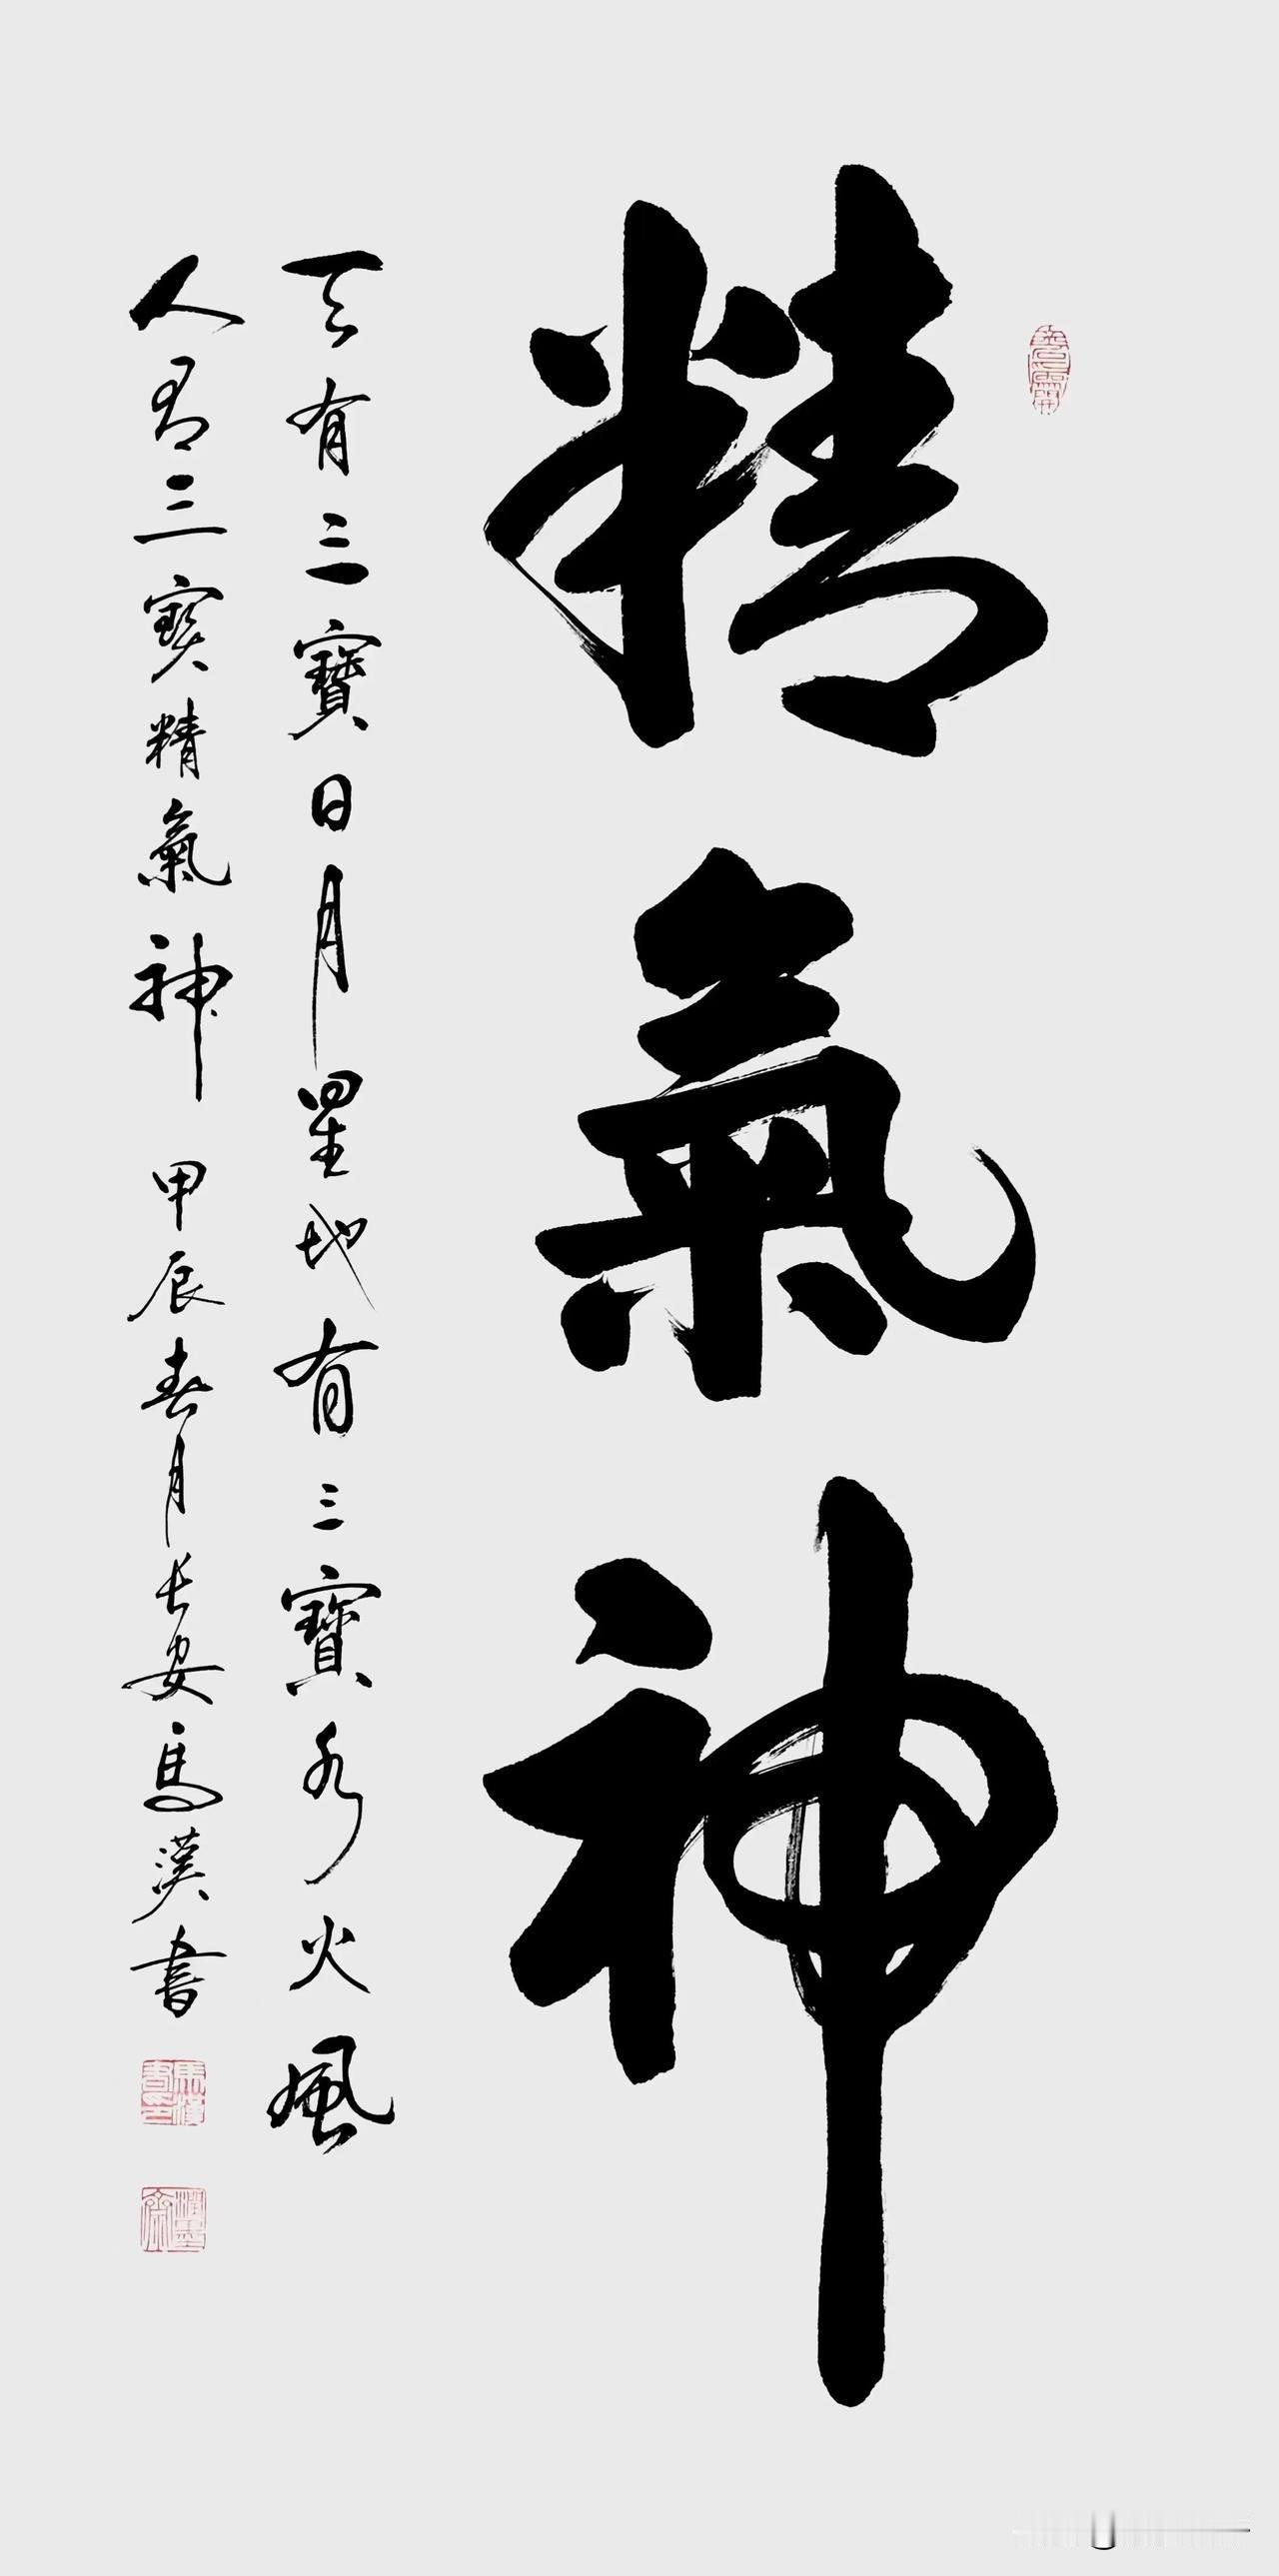 精氣神
天有三寶日月星地有三寶水火風
人有三寶精氣神 甲辰春月長安馬漢書